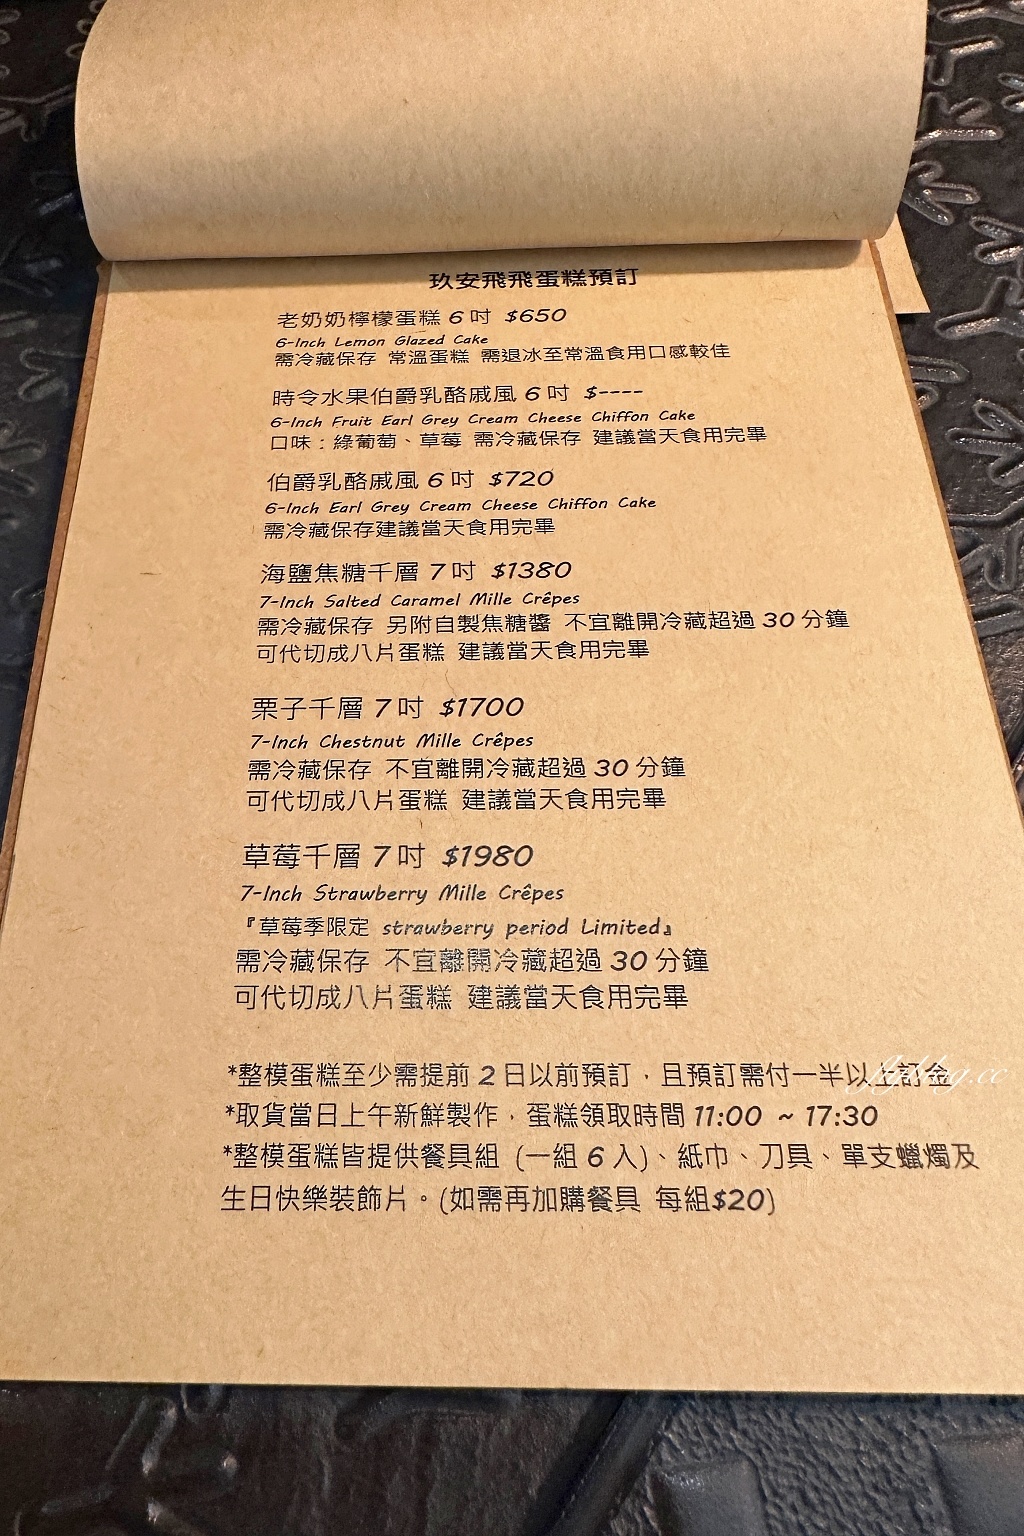 玖安飛飛蛋糕預訂
老奶奶檸檬蛋糕 6 吋 $650
6-Inch Lemon Glazed Cake
需冷藏保存 常溫蛋糕 需退冰至常溫食用口感較佳
時令水果伯爵乳酪戚風 6 吋 $----
6-Inch Fruit Earl Grey Cream Cheese Chiffon Cake
口味：綠葡萄、草莓 需冷藏保存 建議當天食用完畢
伯爵乳酪戚風 6 吋 $720
6-Inch Earl Grey Cream Cheese Chiffon Cake
需冷藏保存建議當天食用完畢
海鹽焦糖千層 7 吋 $1380
7-Inch Salted Caramel Mille Crêpes
需冷藏保存 另附自製焦糖醬 不宜離開冷藏超過 30 分鐘
可代切成八片蛋糕 建議當天食用完畢
栗子千層 7 吋 $1700
7-Inch Chestnut Mille Crêpes
需冷藏保存 不宜離開冷藏超過 30 分鐘
可代切成八片蛋糕 建議當天食用完畢
草莓千層 7 吋 $1980
7-Inch Strawberry Mille Crêpes
『草莓季限定 strawberry period Limited』
需冷藏保存 不宜離開冷藏超過 30 分鐘
可代切成八片蛋糕 建議當天食用完畢
*整模蛋糕至少需提前 2 日以前預訂，且預訂需付一半以上訂金
*取貨當日上午新鮮製作，蛋糕領取時間 11:00 ~ 17:30
*整模蛋糕皆提供餐具組 (一組 6 入)、紙巾、刀具、單支蠟燭及
生日快樂裝飾片。(如需再加購餐具 每組$20)